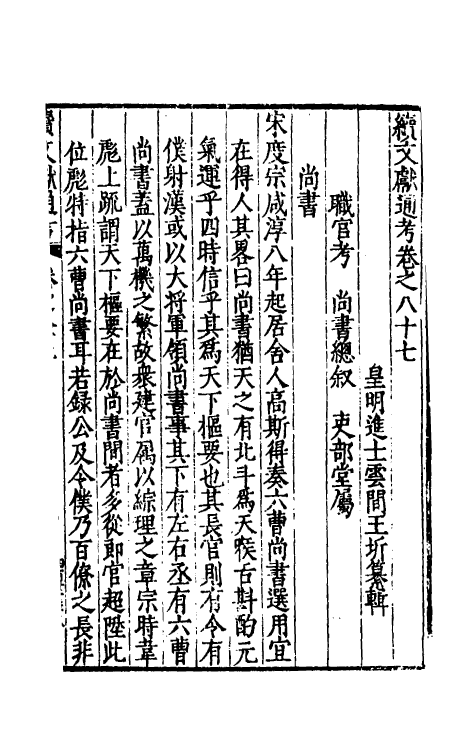 續文獻通考卷之八十七
皇明進士雲間王圻纂輯
職官考　尚書總叙　吏部堂屬
尚書
宋度宗咸淳八年起居舍人高斯得奏六曹尚書選用宜
在得人其畧曰尚書猶天之有北斗爲天喉舌斟酌元
氣運乎四時信乎其爲天下樞要也其長官則有令有
僕射漢或以大将軍領尚書事其下有左右丞有六曹
尚書蓋以萬機之繁故衆建官属以綜理之章宗時韋
彪上䟽謂天下樞要在於尚書間者多從郎官超陞此
位彪特指六曹尚書耳若録公及令僕乃百僚之長非